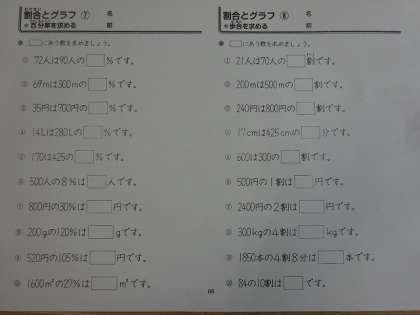 割合とグラフ ⑦ 名
*百分率を求める 前
● □にあう数を求めましょう。
① 72人は90人の□%です。
② 69mは300mの□%です。
③ 35円は700円の□%です。
④ 14Lは280Lの□%です。
⑤ 170は425の□%です。
⑥ 500人の8%は□人です。
⑦ 800円の30%は□円です。
⑧ 200gの120%は□gです。
⑨ 520円の105%は□円です。
⑩ 1600m²の27%は□m²です。
割合とグラフ ⑧ 名
*歩合を求める 前
● □にあう数を求めましょう。
① 21人は70人の□割です。
② 200mは500mの□割です。
③ 240円は800円の□割です。
④ 17cmは425cmの□分です。
⑤ 600は300の□割です。
⑥ 500円の1割は□円です。
⑦ 2400円の2割は□円です。
⑧ 300kgの4割は□kgです。
⑨ 1850本の4割8分は□本です。
⑩ 84の10割は□です。